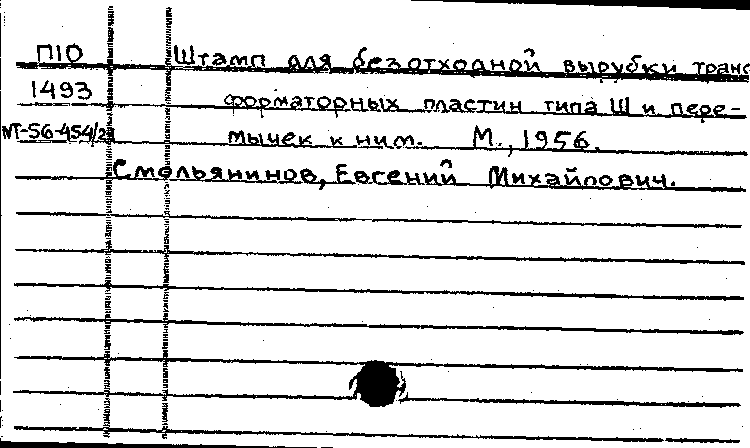 П10 Штамп для безотходной вырубки транс
1493 форматорных пластин типа Ш и пере-
NT-56-454/21 мычек к ним. М., 1956.
Смольянинов, Евгений Михайлович.